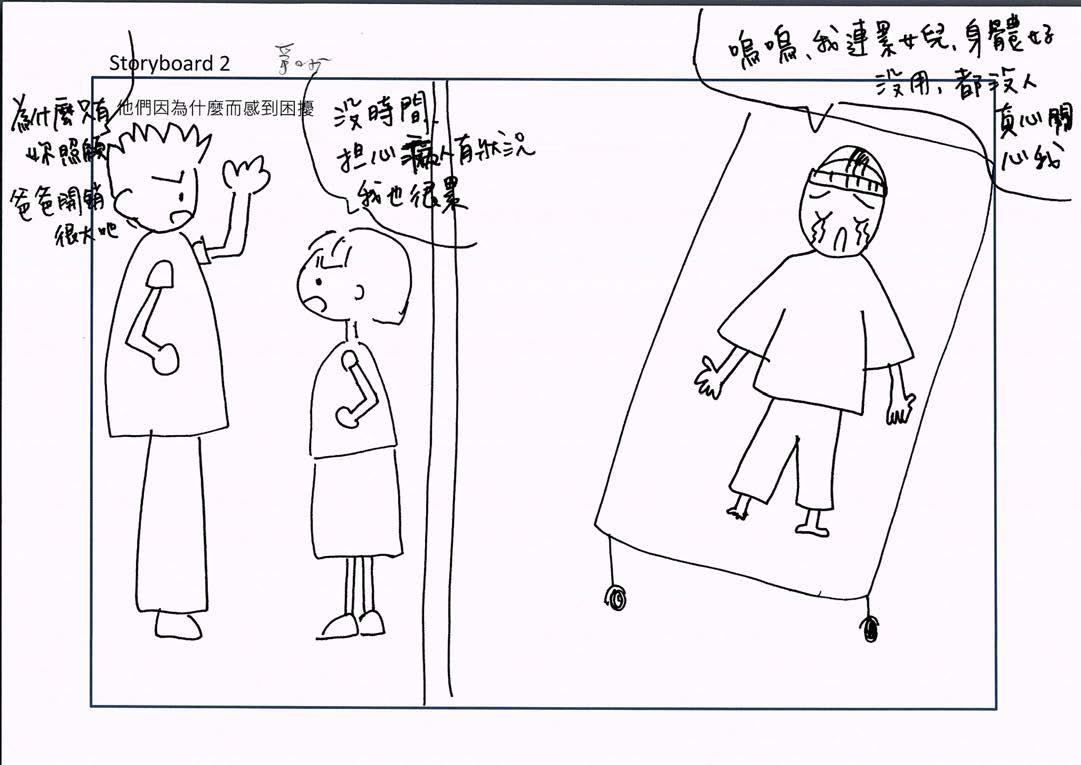 Storyboard 2
他們因為什麼而感到困擾
為什麼只有
妳照顧
爸爸開銷
很大吧
沒時間、
担心病人有狀況
我也很累
嗚嗚、我連累女兒、身體好
沒用、都沒人
真心關
心我